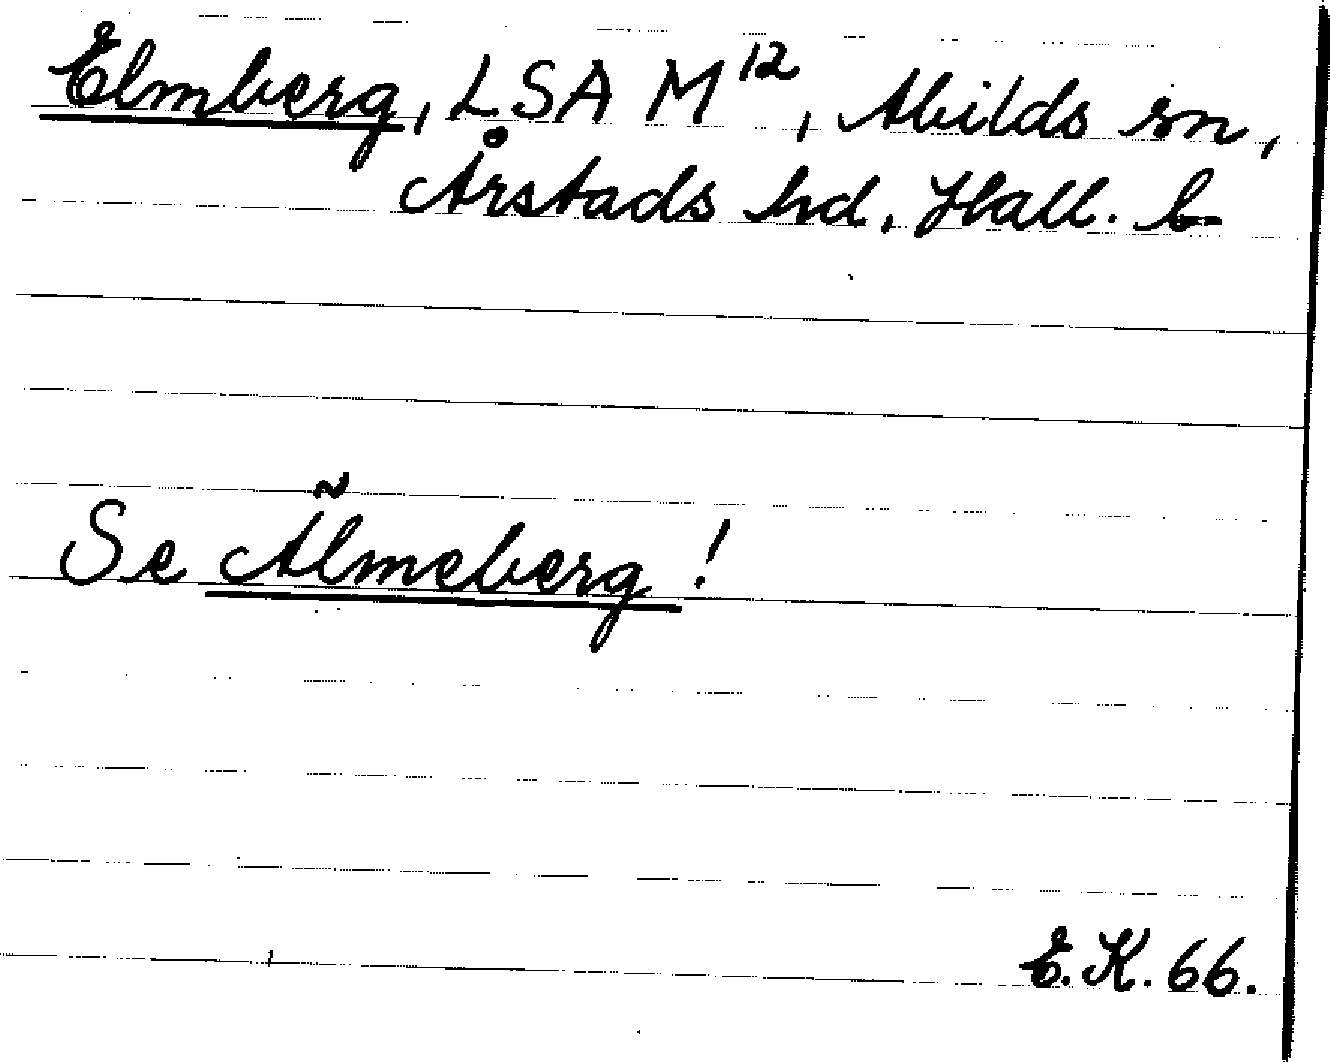 Elmberg, LSA M¹², Abilds sn,
Årstads hd. Hall. l
Se Älmeberg!
E.K. 66.